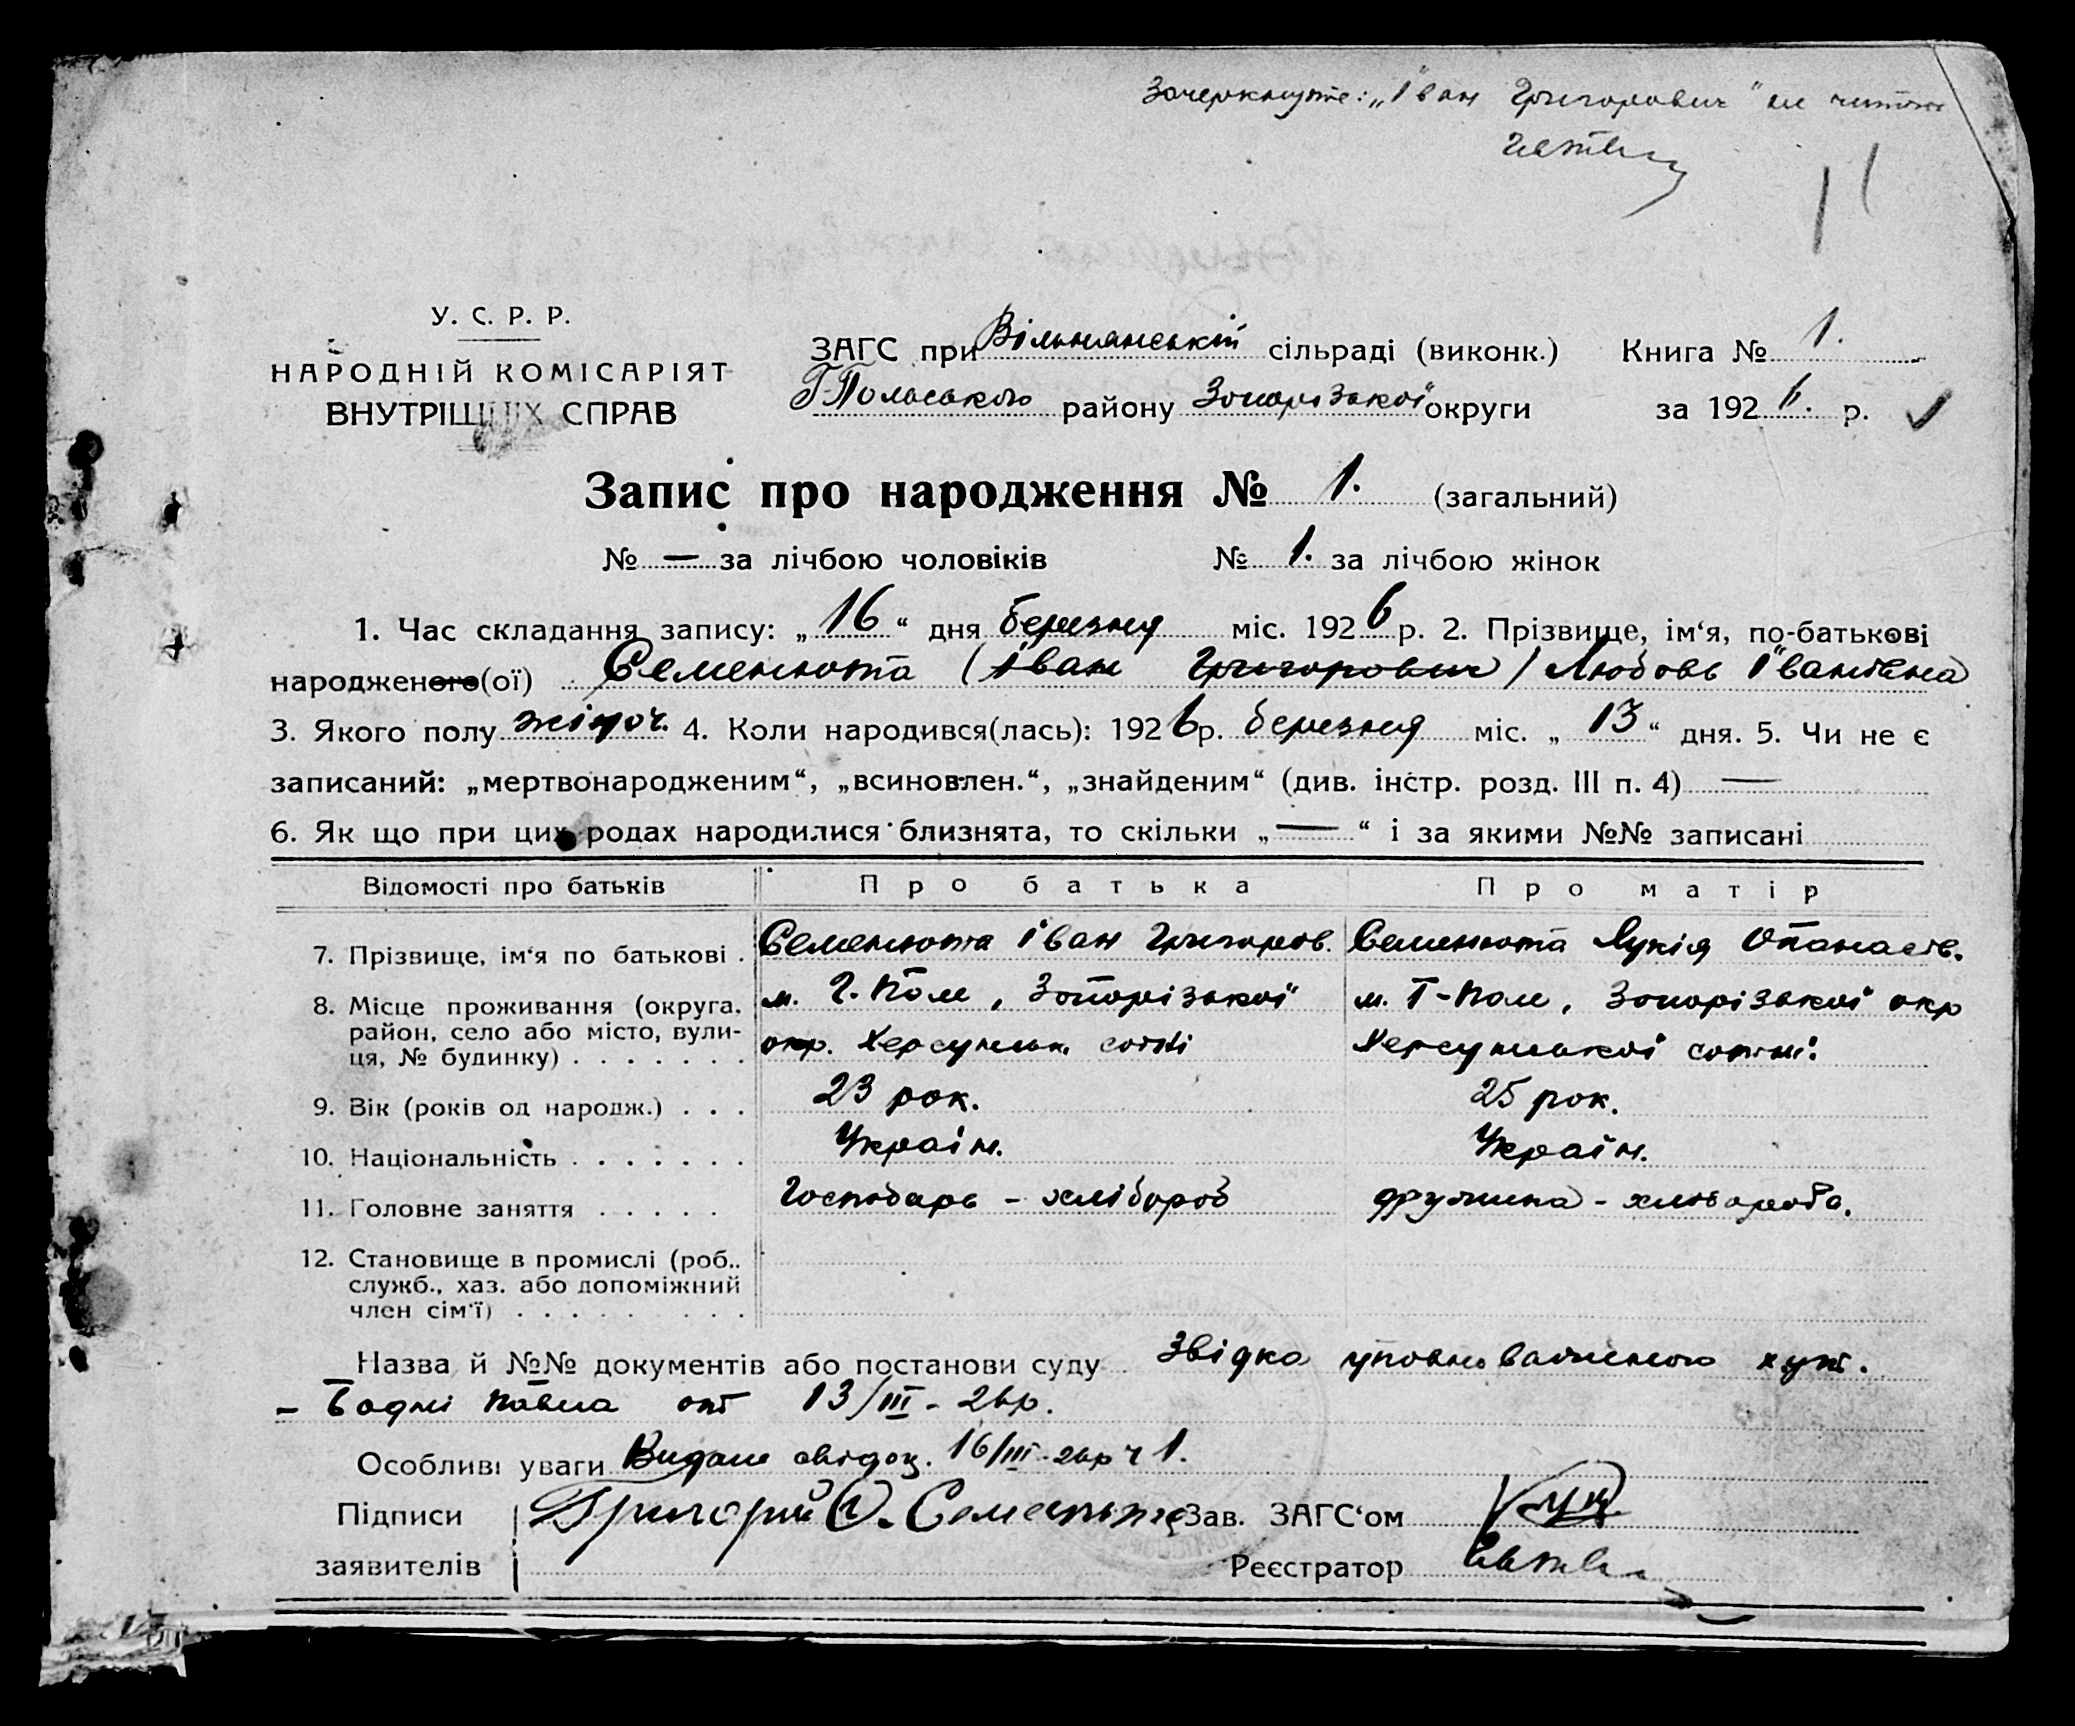 Зачеркнуте: „Іван Григорович“ не читати
У. С. Р. Р.
НАРОДНІЙ КОМІСАРІЯТ
ВНУТРІШНІХ СПРАВ
ЗАГС при Вільнянській сільраді (виконк.) Книга № 1.
Г-Польського району Запорізької округи за 1926. р.
Запис про народження № 1. (загальний)
№ — за лічбою чоловіків № 1. за лічбою жінок
1. Час складання запису: „16“ дня березня міс. 1926 р. 2. Прізвище, ім‘я, по-батькові
народженого(ої) Семенюта (Іван Григорович) Любовь Іванівна
3. Якого полу жіноч. 4. Коли народився(лась): 1926 р. березня міс. „13“ дня. 5. Чи не є
записаний: „мертвонародженим“, „всиновлен.“, „знайденим“ (див. інстр. розд. III п. 4) —
6. Як що при цих родах народилися близнята, то скільки „—“ і за якими №№ записані
Відомості про батьків Про батька Про матір
7. Прізвище, ім‘я по батькові . Семенюта Іван Григоров. Семенюта Лукія Опанасів.
8. Місце проживання (округа, м. Г. Поле, Запорізької м. Г-Поле, Запорізької окр
район, село або місто, вули-
ця, № будинку) . . . . . . . окр. Херсунськ. сотні Херсунської сотні.
9. Вік (років од народж.) . . . 23 рок. 25 рок.
10. Національність . . . . . . . Україн. Україн.
11. Головне заняття . . . . . Господарь - хлібороб дружина - хлібороба.
12. Становище в промислі (роб.,
служб., хаз. або допоміжний
член сім‘ї) . . . . . . . .
Назва й №№ документів або постанови суду Звідка уповноваженого хут.
- Бодні Павла от 13/III - 26р.
Особливі уваги Видане свідоц. 16/III-26р ч 1.
Підписи Григорий О. Семенюта Зав. ЗАГС‘ом
заявителів Реєстратор